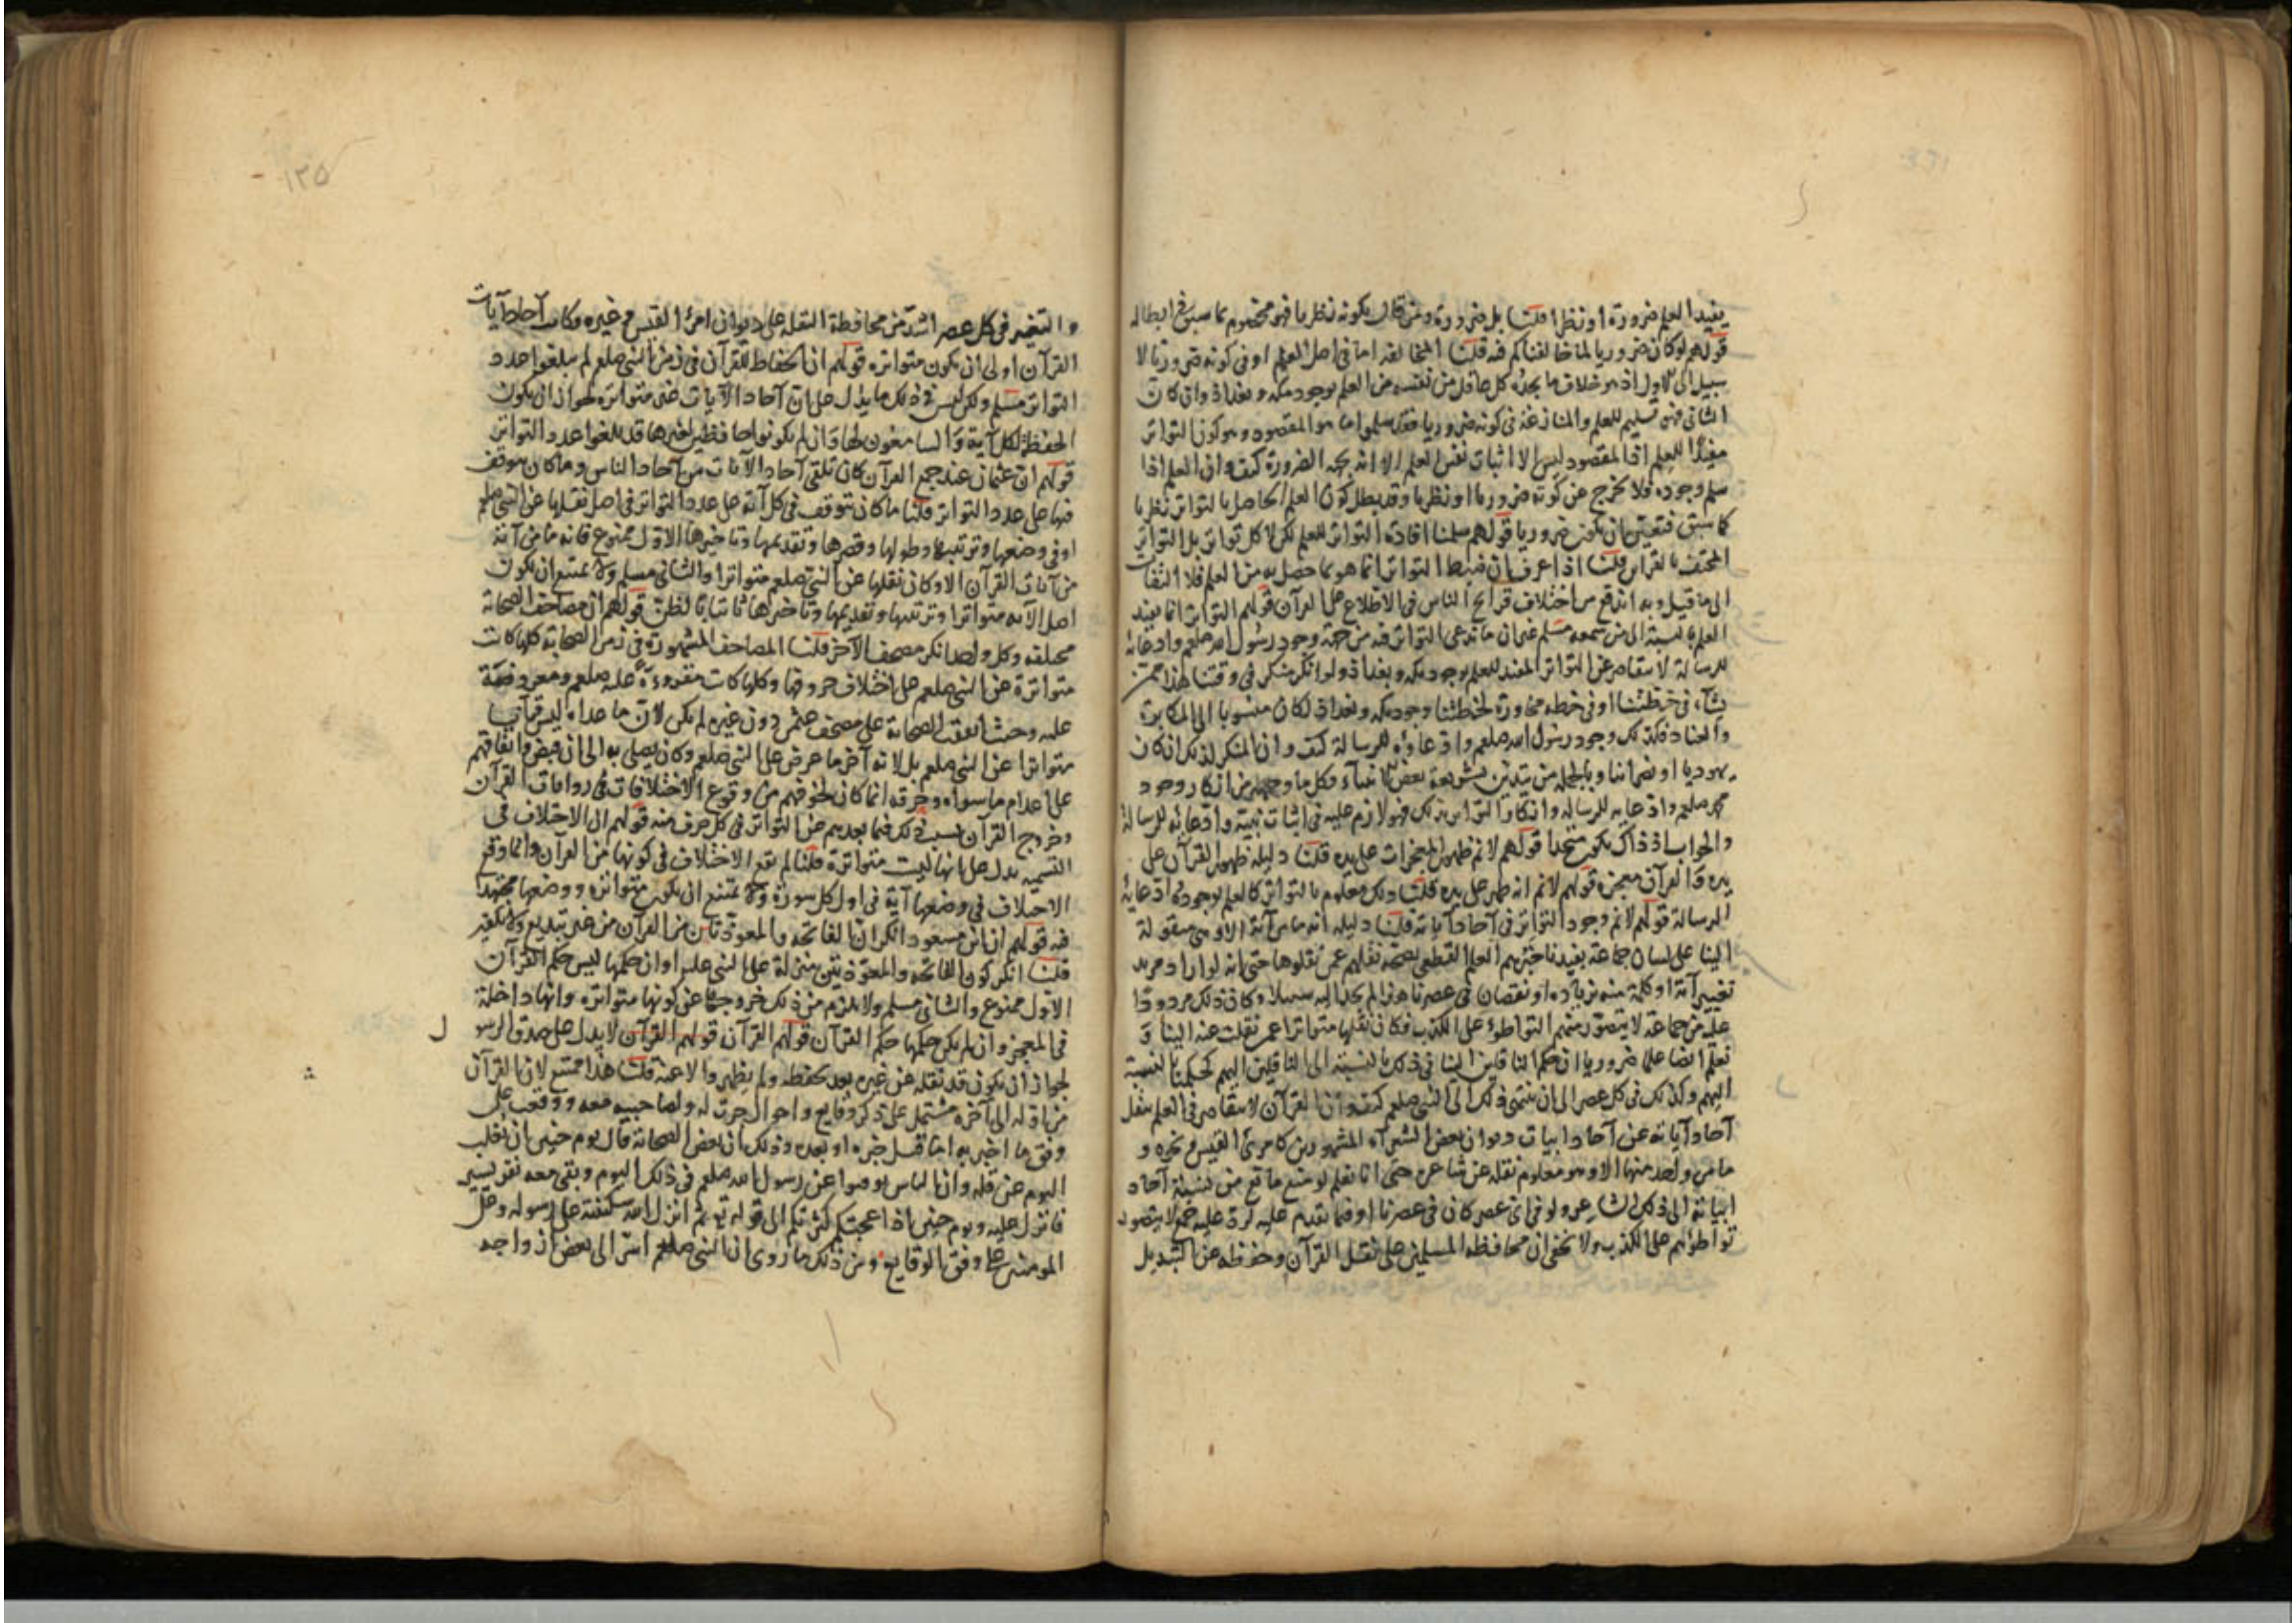 يفيد العلم ضرورة او نظرا قلنا بل ضرورة ومن قال بكونه نظريا فهو مخصوم بما سبق في ابطاله
قولهم لو كان ضروريا لما خالفناكم فيه قلنا المخالفة اما في اصل العلم او في كونه ضروريا لا
سبيل الى الاول اذ هو خلاف ما يجده كل عاقل من نفسه من العلم بوجود مكة وبغداذ وان كان
الثاني فهو تسليم للعلم والمنازعة في كونه ضروريا فقد سلموا ما هو المقصود وهو كون التواتر
مفيدا للعلم اذ المقصود ليس الا اثبات نفس العلم لا انه بجهة الضرورة كيف وان العلم اذا
سلم وجوده فلا يخرج عن كونه ضروريا او نظريا وقد بطل كون العلم الحاصل بالتواتر نظريا
كما سبق فتعين ان يكون ضروريا قولهم سلمنا افادة التواتر للعلم لكن لا كل تواتر بل التواتر
المحتف بالقراين قلنا اذا عرف ان ضبط التواتر انما هو بما حصل به من العلم فلا التفات
الى ما قيل وبه اندفع من اختلاف قرايح الناس في الاطلاع على القرآن قولهم التواتر انما يفيد
العلم بالنسبة الى من سمعه مسلم غير ان ما ندعي التواتر فيه من جهة وجود رسول الله صلعم وادعائه
للرسالة لا يتقاصر عن التواتر المفيد للعلم بوجود مكة وبغداذ ولو انكر منكر في وقتنا هذا ممن
نشاء في خطتنا او في خطة مجاورة لخطتنا وجود مكة وبغداذ لكان منسوبا الى المكابرة
والعناد فكذلك وجود رسول الله صلعم وادعاوه للرسالة كيف وان المنكر لذلك ان كان
يهوديا او نصرانيا وبالجملة من يتدين بشريعة بعض الانبياء فكل ما وجهه من انكار وجود
محمد صلعم وادعايه للرسالة وانكار التواتر بذلك فهو لازم عليه في اثبات نبيه وادعائه للرسالة
والجواب اذ ذاك يكون متحدا قولهم لا نم ظهور المعجزات على يده قلنا دليله ظهور القرآن على
يده والقرآن معجزة قولهم لا نم انه ظهر على يده قلنا ذلك معلوم بالتواتر كالعلم بوجوده وادعايه
الرسالة قولهم لا نم وجود التواتر في آحاد آياته قلنا دليله انه ما من آية الا وهي منقولة
الينا على لسان جماعة يفيدنا خبرهم العلم القطعي بصحة نقلهم عمن نقلوها حتى انه لو اراد مريد
تغيير آية او كلمة منه بزيادة او نقصان في عصرنا هذا لم يجد اليه سبيلا وكان ذلك مردودا
عليه من جماعة لا يتصور منهم التواطؤ على الكذب فكان نقلها متواترا عمن نقلت عنه الينا و
نعلم ايضا علما ضروريا ان حكم الناقلين الينا في ذلك بالنسبة الى الناقلين اليهم كحكمنا بالنسبة
اليهم وكذلك في كل عصر الى ان ينتهي ذلك الى النبي صلعم كيف وان القرآن لا يتقاصر في العلم بنقل
آحاد آياته عن آحاد ابيات ديوان بعض الشعرآء المشهورين كامرئ القيس ونحوه و
ما من واحد منها الا وهو معلوم نقله عن شاعره حتى انا نعلم لو منع مانع من نسبة آحاد
ابياته الى ذلك الشاعر ولو في اي عصر كان في عصرنا او فيما تقدم عليه لرد عليه جمع لا يتصور
تواطؤهم على الكذب ولا يخفى ان محافظة المسلمين على نقل القرآن وحفظه عن التبديل
١٣٥
والتغيير في كل عصر اشد من محافظة النقلة على ديوان امرئ القيس وغيره فكانت آحاد آيات
القرآن اولى ان يكون متواترة قولهم ان الحفاظ للقرآن في زمن النبي صلعم لم يبلغوا عدد
التواتر مسلم ولكن ليس في ذلك ما يدل على ان آحاد الآيات غير متواترة لجواز ان يكون
الحفظة لكل آية والسامعون لها وان لم يكونوا حافظين لغيرها قد بلغوا عدد التواتر
قولهم ان عثمان عند جمع القرآن كان يتلقى آحاد الآيات من آحاد الناس وما كان يتوقف
فيها على عدد التواتر قلنا ما كان يتوقف في كل آية على عدد التواتر في اصل نقلها عن النبي صلعم
او في وضعها وترتيبها وطولها وقصرها وتقديمها وتاخيرها الاول ممنوع فانه ما من آية
من آيات القرآن الا وكان نقلها عن النبي صلعم متواترا والثاني مسلم ولا يمتنع ان يكون
اصل الآية متواترا وترتيبها وتقديمها وتاخيرها ثابتا بالظن قولهم ان مصاحف الصحابة
مختلفة وكل واحد انكر مصحف الآخر قلنا المصاحف المشهورة في زمن الصحابة كلها كانت
متواترة عن النبي صلعم على اختلاف حروفها وكلها كانت مقروءة عليه صلعم ومعروضة
عليه وحيث اتفقت الصحابة على مصحف عثمن دون غيره لم يكن لان ما عداه ليس قرآنيا
متواترا عن النبي صلعم بل لانه آخر ما عرض على النبي صلعم وكان يصلي به الى ان قبض واتفاقهم
على اعدام ما سواه وحرقه انما كان لخوفهم من وقوع الاختلافات في روايات القرآن
وخروج القرآن بسبب ذلك فيما بعدهم عن التواتر في كل حرف منه قولهم ان الاختلاف في
التسمية يدل على انها ليست متواترة قلنا لم يقع الاختلاف في كونها من القرآن وانما وقع
الاختلاف في وضعها آية في اول كل سورة ولا يمتنع ان يكون متواترة ووضعها مجتهدا
فيه قولهم ان ابن مسعود انكر ان الفاتحة والمعوذتين من القرآن من غير تبديع ولا تكفير
قلنا انكر كون الفاتحة والمعوذتين منزلة على النبي عليه او ان حكمها ليس حكم القرآن
الاول ممنوع والثاني مسلم ولا يلزم من ذلك خروجها عن كونها متواترة وانها داخلة
في المعجز وان لم يكن حكمها حكم القرآن قولهم القرآن قولهم القرآن لا يدل على صدق الرسو ل
لجواز ان يكون قد نقله عن غيره بعد حفظه ولم يظهر والا عنه قلنا هذا ممتنع لان القرآن
من اوله الى آخره مشتمل على ذكر وقايع واحوال جرت له ولصاحبيه معه ووقعت على
وفق ما اخبر به اما قبل خبره او بعده وذلك ان بعض الصحابة قال يوم حنين لن نغلب
اليوم عن قلة وان الناس نووا عن رسول الله صلعم في ذلك اليوم وبقي معه نفر يسير
فانزل عليه ويوم حنين اذ اعجبتكم كثرتكم الى قوله ثم انزل الله سكينته على رسوله وعلى
المومنين على وفق الوقايع ومن ذلك ما روى ان النبي صلعم اسر الى بعض ازواجه